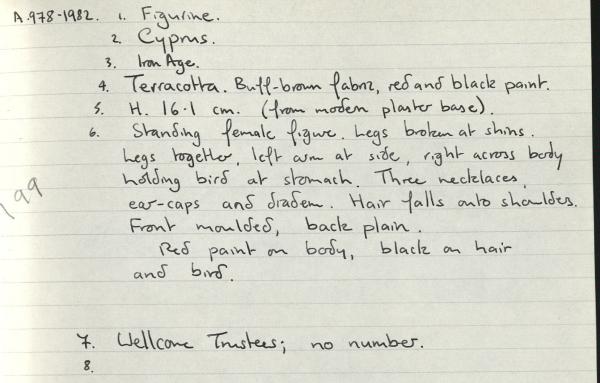 A.978-1982. 1. Figurine.
2. Cyprus.
3. Iron Age.
4. Terracotta. Buff-brown fabric, red and black paint.
5. H. 16.1 cm. (from modern plaster base).
6. Standing female figure. Legs broken at shins.
Legs together, left arm at side, right across body
holding bird at stomach. Three necklaces,
ear-caps and diadem. Hair falls onto shoulders.
Front moulded, back plain.
Red paint on body, black on hair
and bird.
199
7. Wellcome Trustees; no number.
8.